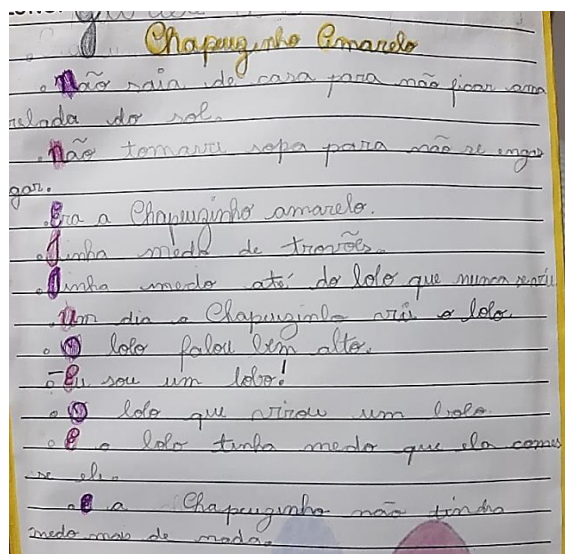 Chapeuzinho Amarelo
Não saia de casa para não ficar ama
relada do sol.
Não tomava sopa para não se engas
gar.
Era a Chapeuzinho amarelo.
Tinha medo de trovões.
Tinha medo até do lobo que nunca
Um dia a Chapeuzinho viu o lobo.
O lobo falou bem alto.
- Eu sou um lobo!
O lobo que virou um bolo.
E o lobo tinha medo que ela comes
se ele.
E a Chapeuzinho não tinha
medo mais de nada.